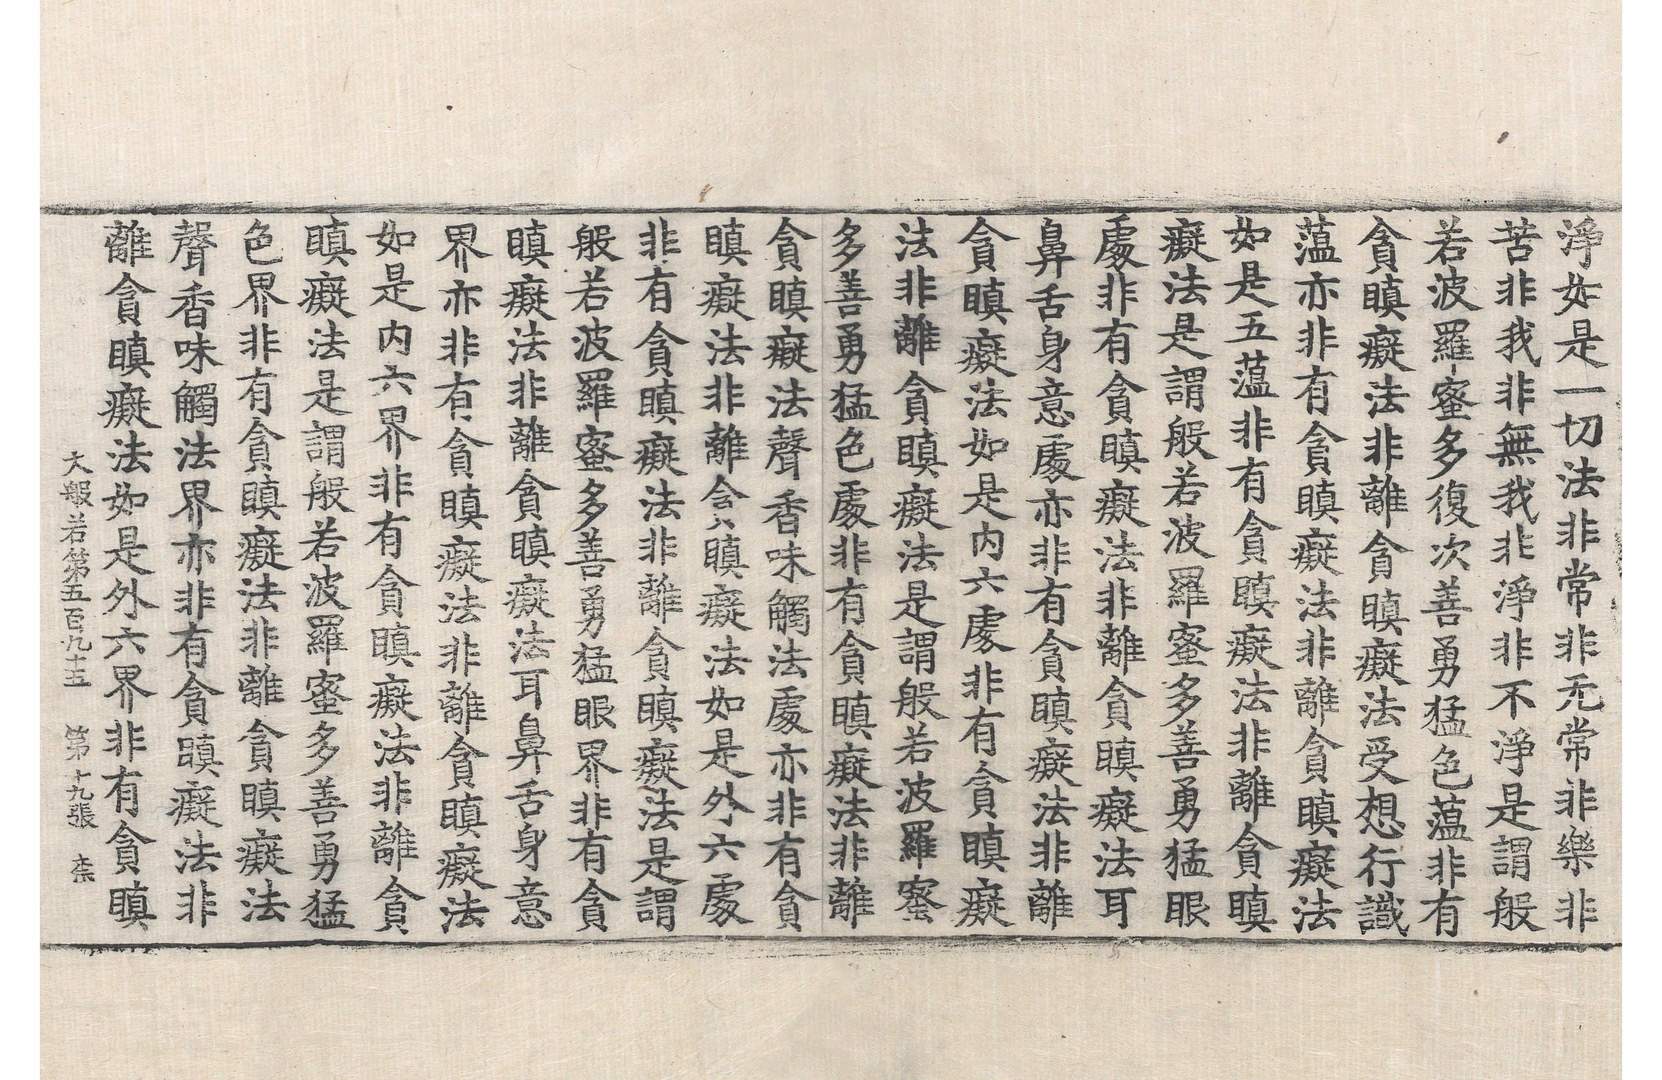 淨如是一切法非常非无常非樂非
苦非我非無我非淨非不淨是謂般
若波羅蜜多復次善勇猛色薀非有
貪瞋癡法非離貪瞋癡法受想行識
薀亦非有貪瞋癡法非離貪瞋癡法
如是五薀非有貪瞋癡法非離貪瞋
癡法是謂般若波羅蜜多善勇猛眼
處非有貪瞋癡法非離貪瞋癡法耳
鼻舌身意處亦非有貪瞋癡法非離
貪瞋癡法如是内六處非有貪瞋癡
法非離貪瞋癡法是謂般若波羅蜜
多善勇猛色處非有貪瞋癡法非離
貪瞋癡法聲香味觸法處亦非有貪
瞋癡法非離貪瞋癡法如是外六處
非有貪瞋癡法非離貪瞋癡法是謂
般若波羅蜜多善勇猛眼界非有貪
瞋癡法非離貪瞋癡法耳鼻舌身意
界亦非有貪瞋癡法非離貪瞋癡法
如是内六界非有貪瞋癡法非離貪
瞋癡法是謂般若波羅蜜多善勇猛
色界非有貪瞋癡法非離貪瞋癡法
聲香味觸法界亦非有貪瞋癡法非
離貪瞋癡法如是外六界非有貪瞋
大般若第五百九十五 第十九張 柰